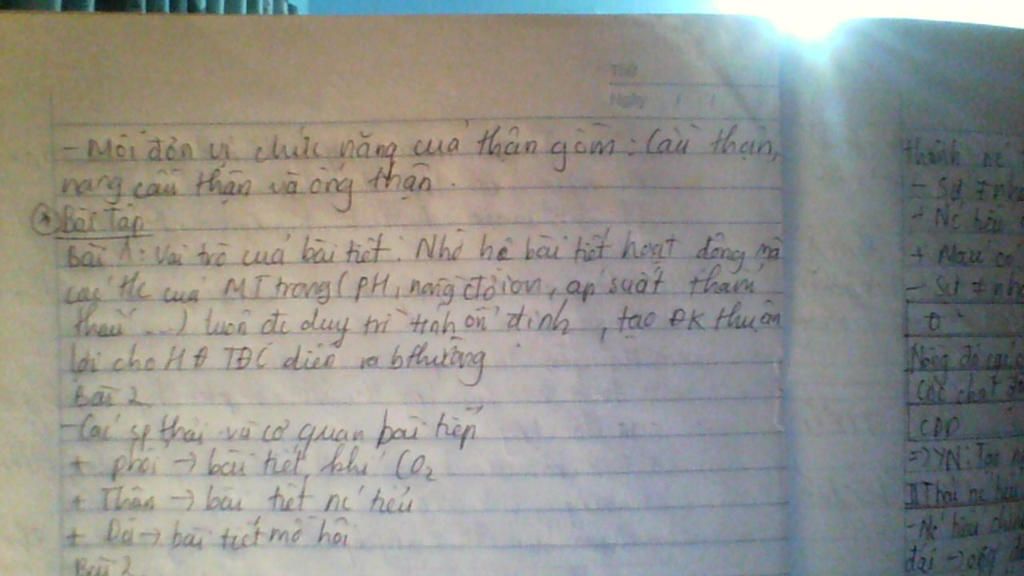 Thứ
Ngày / /
- Mỗi đơn vị chức năng của thận gồm: Cầu thận,
nang cầu thận và ống thận.
* Bài Tập
Bài 1: Vai trò của bài tiết: Nhờ hệ bài tiết hoạt động mà
các tc của MT trong (PH, nồng độ ion, áp suất thẩm
thấu ...) luôn đc duy trì tính ổn định, tạo ĐK thuận
lợi cho HĐ TĐC diễn ra bthường
Bài 2
- Các sp thải và cơ quan bài tiếp
+ phổi → bài tiết khí CO2
+ Thận → bài tiết nc tiểu
+ Da → bài tiết mồ hôi
Bài 2
thành nc
- Sự ≠ nha
+ Nc tiểu
+ Máu có
- Sự ≠ nha
Nồng độ các c
Các chất
II Thải nc tiểu
- Nc tiểu chính